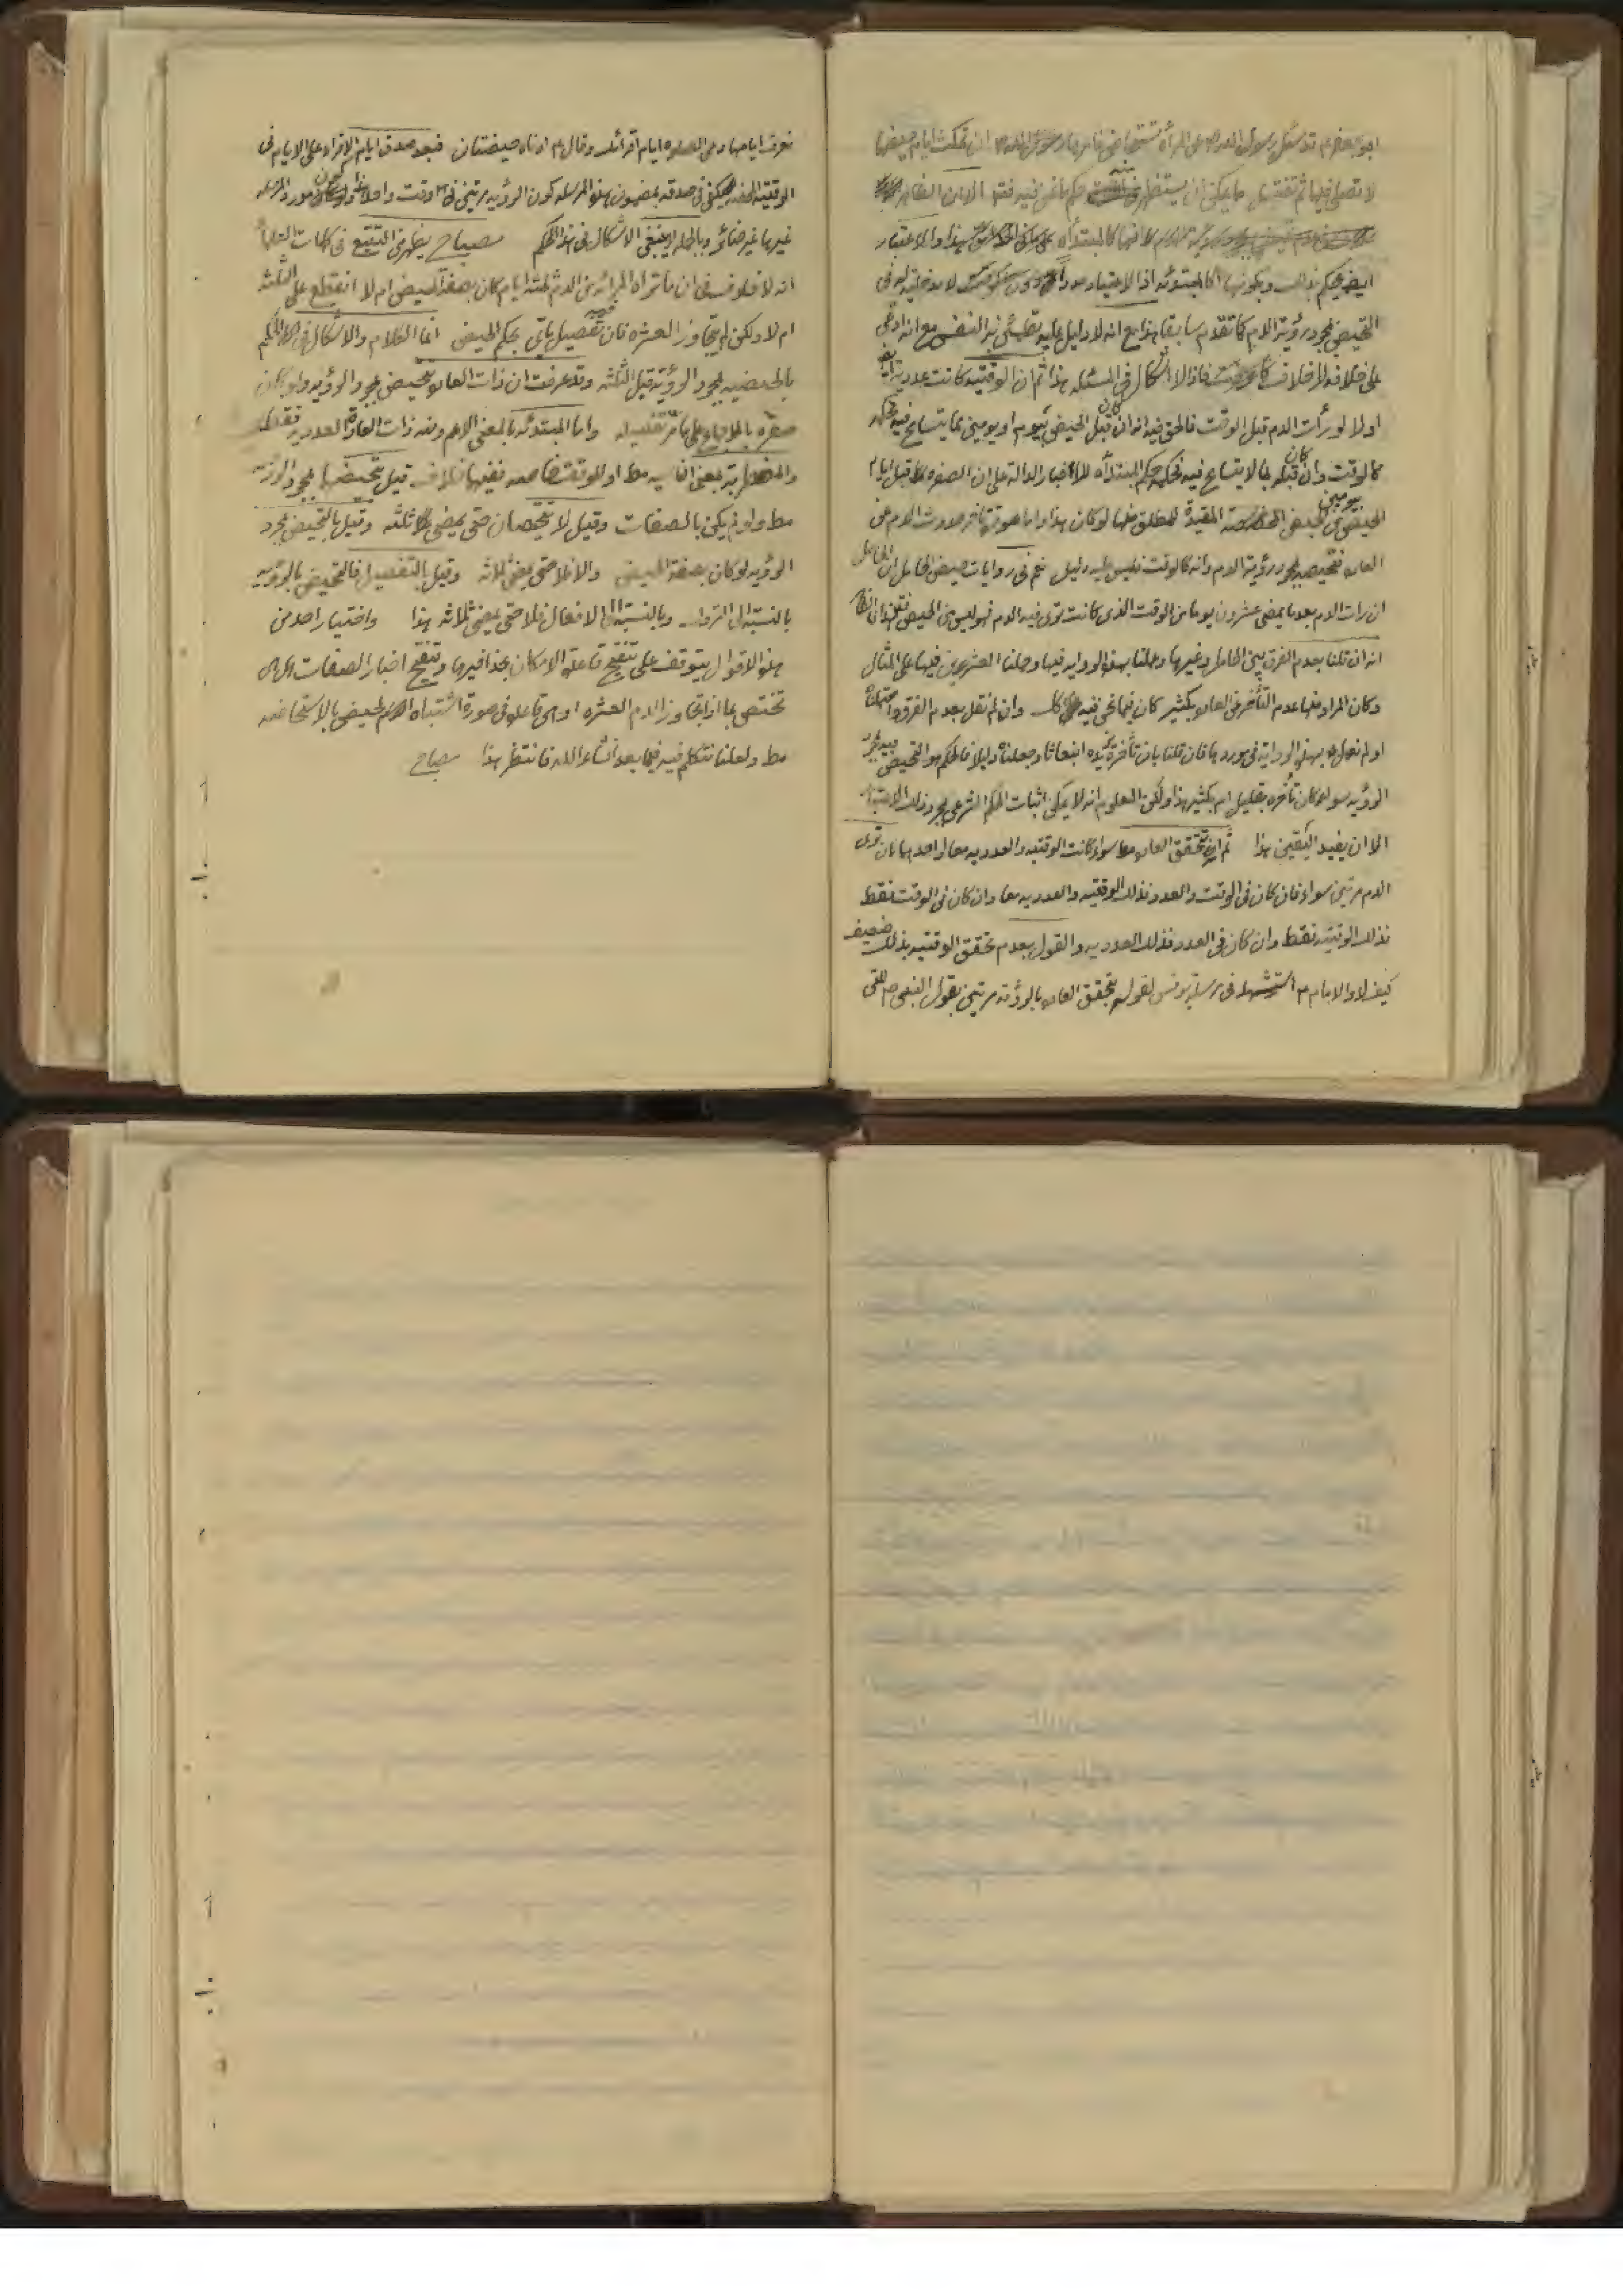 ابو جعفر م قد سئل رسول الله ص عن المرأة تستحاض فامرها رسول الله ص ان تمكث ايام حيضها
لا تصلى فيها ثم تغتسل حكم ما نحن فيه فقد الامان
لانها كالمبتدأه هذا والاعتبار
ايض يحكم بذلك وبكونها كالمبتدئه اذ الاعتبار لا مدخليه له فى
التحيض بمجرد رؤية الدم كما تقدم سابقا هذا مع انه لا دليل عليه تطمئن به النفس مع انه ادعى
على خلافه فاذا لا اشكال فى المسئله هذا ثم ان الوقتيه كانت عدديه ايض
او لا لو رأت الدم قبل الوقت فالحق فيه انه ان كان قبل الحيض بيوم او يومين مما يتسامح فيه فحكمه
كالوقت وان كان قبله بما لا يتسامح فيه فحكمه حكم المبتدأه للاخبار الدالة على ان الصفره قبل ايام
الحيض بيومين من الحيض المقيدة للمطلق منها لو كان هذا واما صورة تاخر حدوث الدم عن
العاده فتحيضه بمجرد رؤية الدم وانه كالوقت فليس عليه دليل نعم فى روايات حيض الحامل ان الحامل
ان رات الدم بعد ما يمضى عشرون يوما من الوقت الذى كانت ترى فيه الدم فهو ليس من الحيض
انه ان قلنا بعدم الفرق بين الحامل وغيرها وعملنا بهذه الروايه فيها وحملنا العشرين فيها على المثال
وكان المراد منها عدم التأخر عن العاده بكثير كان فيما نحن فيه كك وان لم نقل بعدم الفرق
او لم نعمل بهذه الرواية فى موردها فان قلنا بان تأخره يزيده انبعاثا وجعلناه دليلا فالحكم هو التحيض بمجرد
الرؤيه سواء كان تأخره بقليل ام بكثير هذا ولكن المعلوم انه لا يمكن اثبات الحكم الشرعى بمجرد ذلك الاعتبار
الا ان يفيد اليقين هذا ثم ان تحقق العاده سواء كانت الوقتيه والعدديه معا او احدهما بان ترى
الدم مرتين سواء فان كان فى الوقت والعدد فذلك الوقتيه والعدديه معا وان كان فى الوقت فقط
فذلك الوقتيه فقط وان كان فى العدد فذلك العدديه والقول بعدم تحقق الوقتيه بذلك ضعيف
كيف لا والامام م استشهد فى مرسلة يونس لقوله بتحقق العاده بالرؤية مرتين بقول النبى ص للتى
تعرف ايامها دعى الصلوه ايام اقرائك وقال م ادناه حيضتان فبعد صدق ايام الاقراء على الايام فى
الوقتيه المحضه يكفى فى صدقه بمضمون هذه المرسله كون الرؤيه مرتين فى وقت واحد وكون مورد المرسله
غيرها غير ضائر وبالجمله لا ينبغى الاشكال فى هذا الحكم مصباح يظهر من التتبع فى كلمات العلماء
انه لا خلاف فى ان ما تراه المرأه من الدم ثلثه ايام كان بصفة الحيض ام لا انقطع على الثلثه
ام لا ولكن لم يتجاوز العشره فان فيه تفصيل ياتى بحكم الحيض انما الكلام والاشكال فى الحكم
بالحيضيه بمجرد الرؤية قبل الثلثه وقد عرفت ان ذات العاده تتحيض بمجرد الرؤيه ولو كان
صفره بالاجماع على ما مر تفصيله واما المبتدئه بالمعنى الاعم ومنه ذات العادة العدديه فقط
والمضطربة بمعنى الناسيه مط او للوقت خاصه ففيها خلاف قيل بتحيضها بمجرد الرؤيه
مط ولو لم يكن بالصفات وقيل لا تتحيضان حتى يمضى ثلثه وقيل بالتحيض بمجرد
الرؤيه لو كان بصفة الحيض والا فلا حتى يمضى ثلاثه وقيل بالتفصيل فالتحيض بالرؤيه
بالنسبة الى التروك وبالنسبة الى الافعال فلا حتى يمضى ثلاثه هذا واختيار احد من
هذه الاقوال يتوقف على تنقيح قاعدة الامكان بحذافيرها وتنقيح اخبار الصفات هل
تختص بما اذا تجاوز الدم العشره او هى قاعده فى صورة اشتباه الدم الحيض بالاستحاضه
مط ولعلنا نتكلم فيه فيما بعد انشاء الله فانتظر هذا مصباح